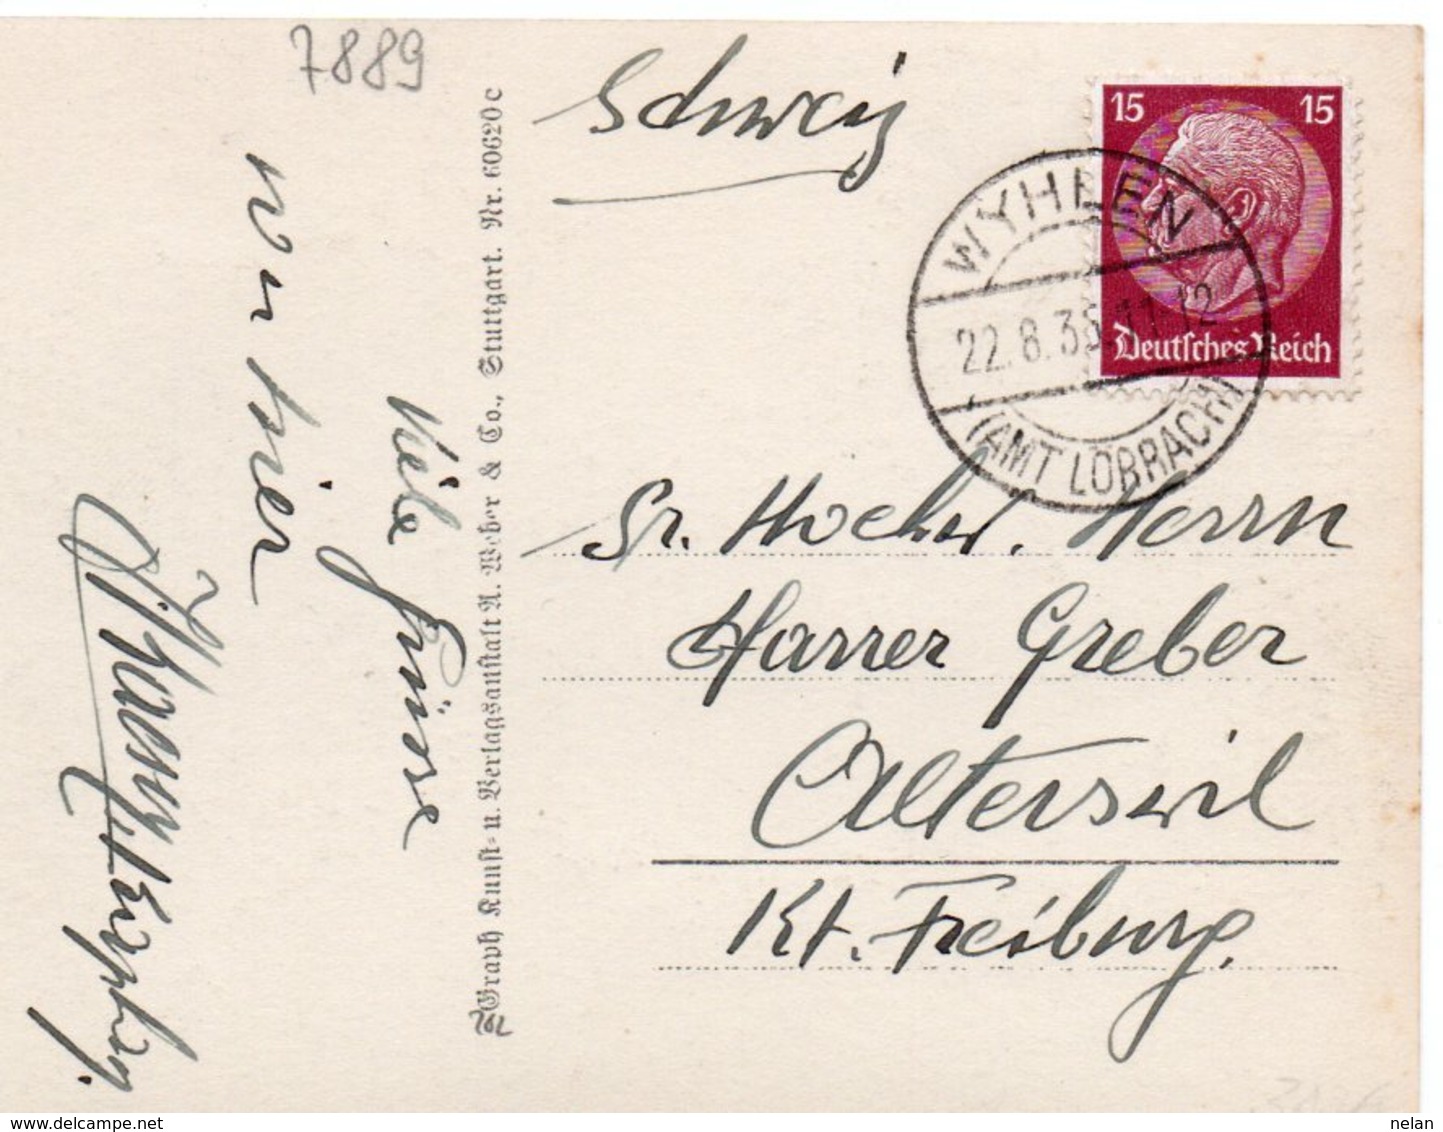 7889
Schweiz
15 15
Deutsches Reich
WYHLEN
22.8.35.11-12
(AMT LÖRRACH)
Viele Grüsse
von hier
Graph Kunst- u. Verlagsanstalt A. Weber & Co., Stuttgart. Nr. 60620c
Sr. Hochw. Herrn
Pfarrer Greber
Alterswil
Kt. Freiburg.
delcampe.net
nelan